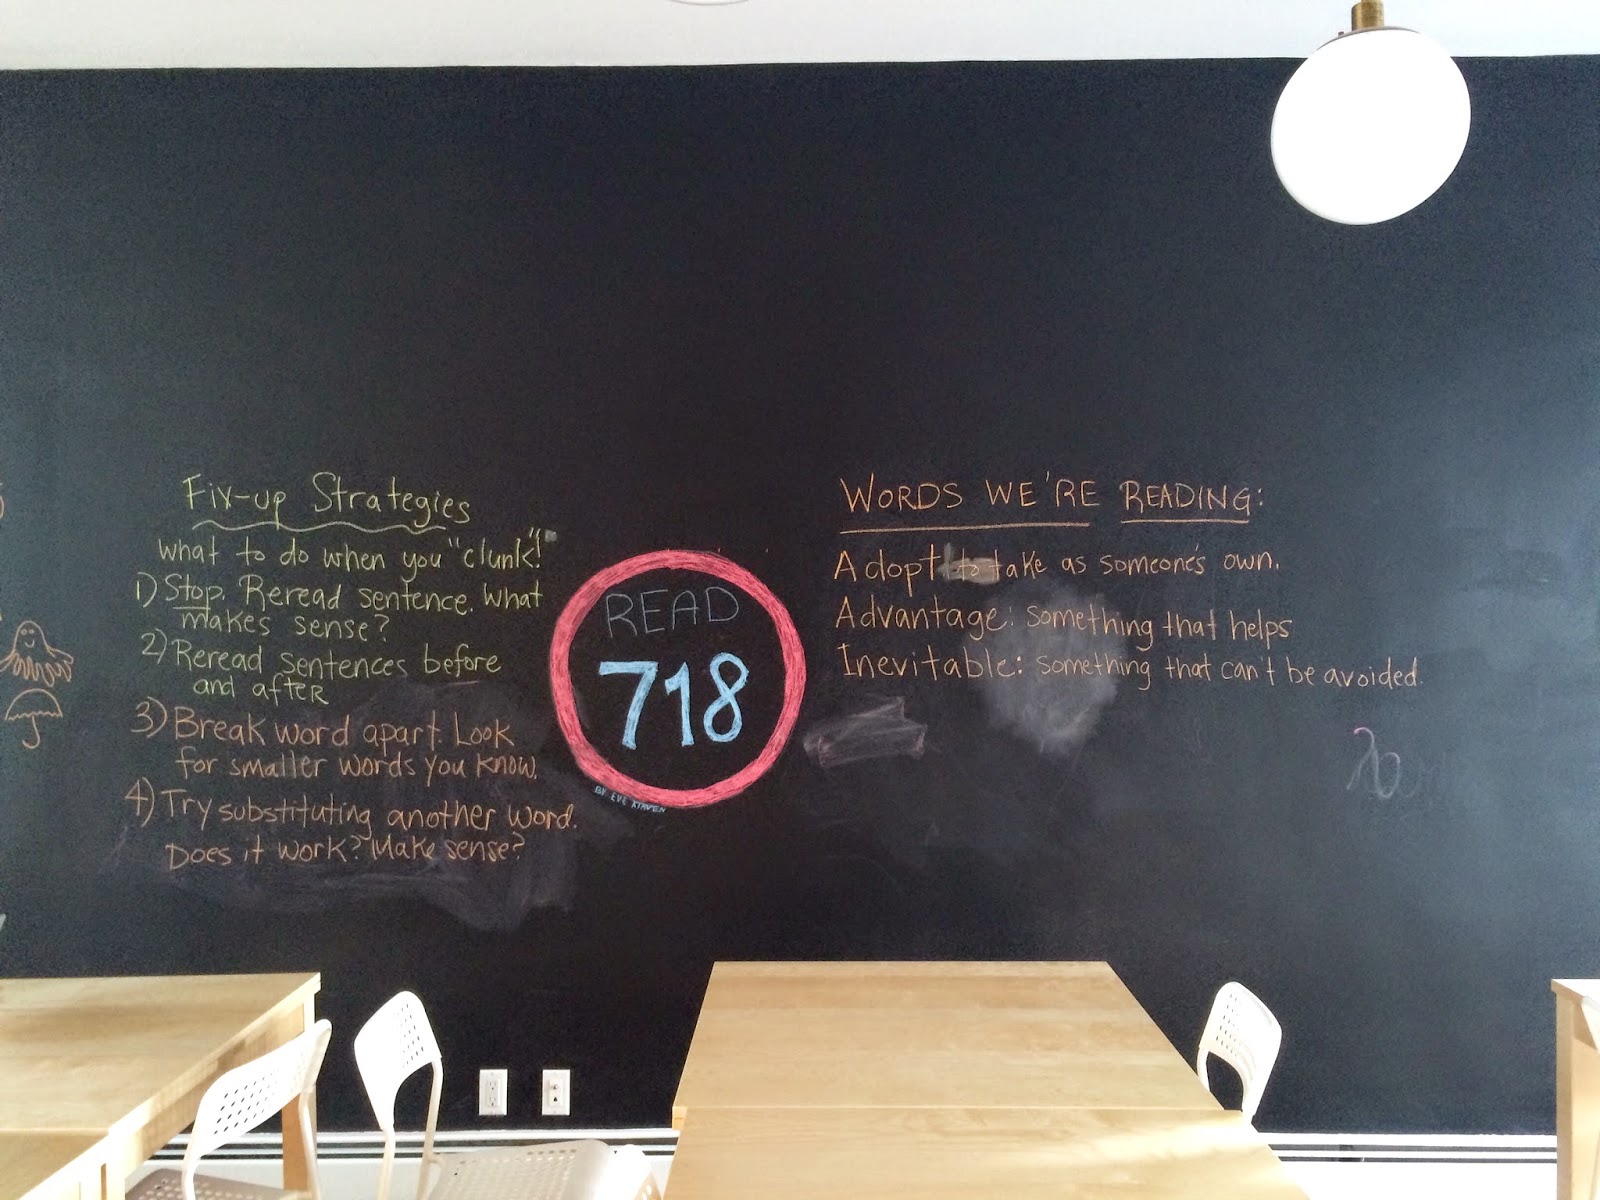 Fix-up Strategies
what to do when you "clunk"!
1) Stop. Reread sentence. What
makes sense?
2) Reread sentences before
and after
3) Break word apart. Look
for smaller words you know.
4) Try substituting another word.
Does it work? Make sense?
READ
718
BY EVE
WORDS WE'RE READING:
Adopt to take as someone's own.
Advantage: something that helps
Inevitable: something that can't be avoided.